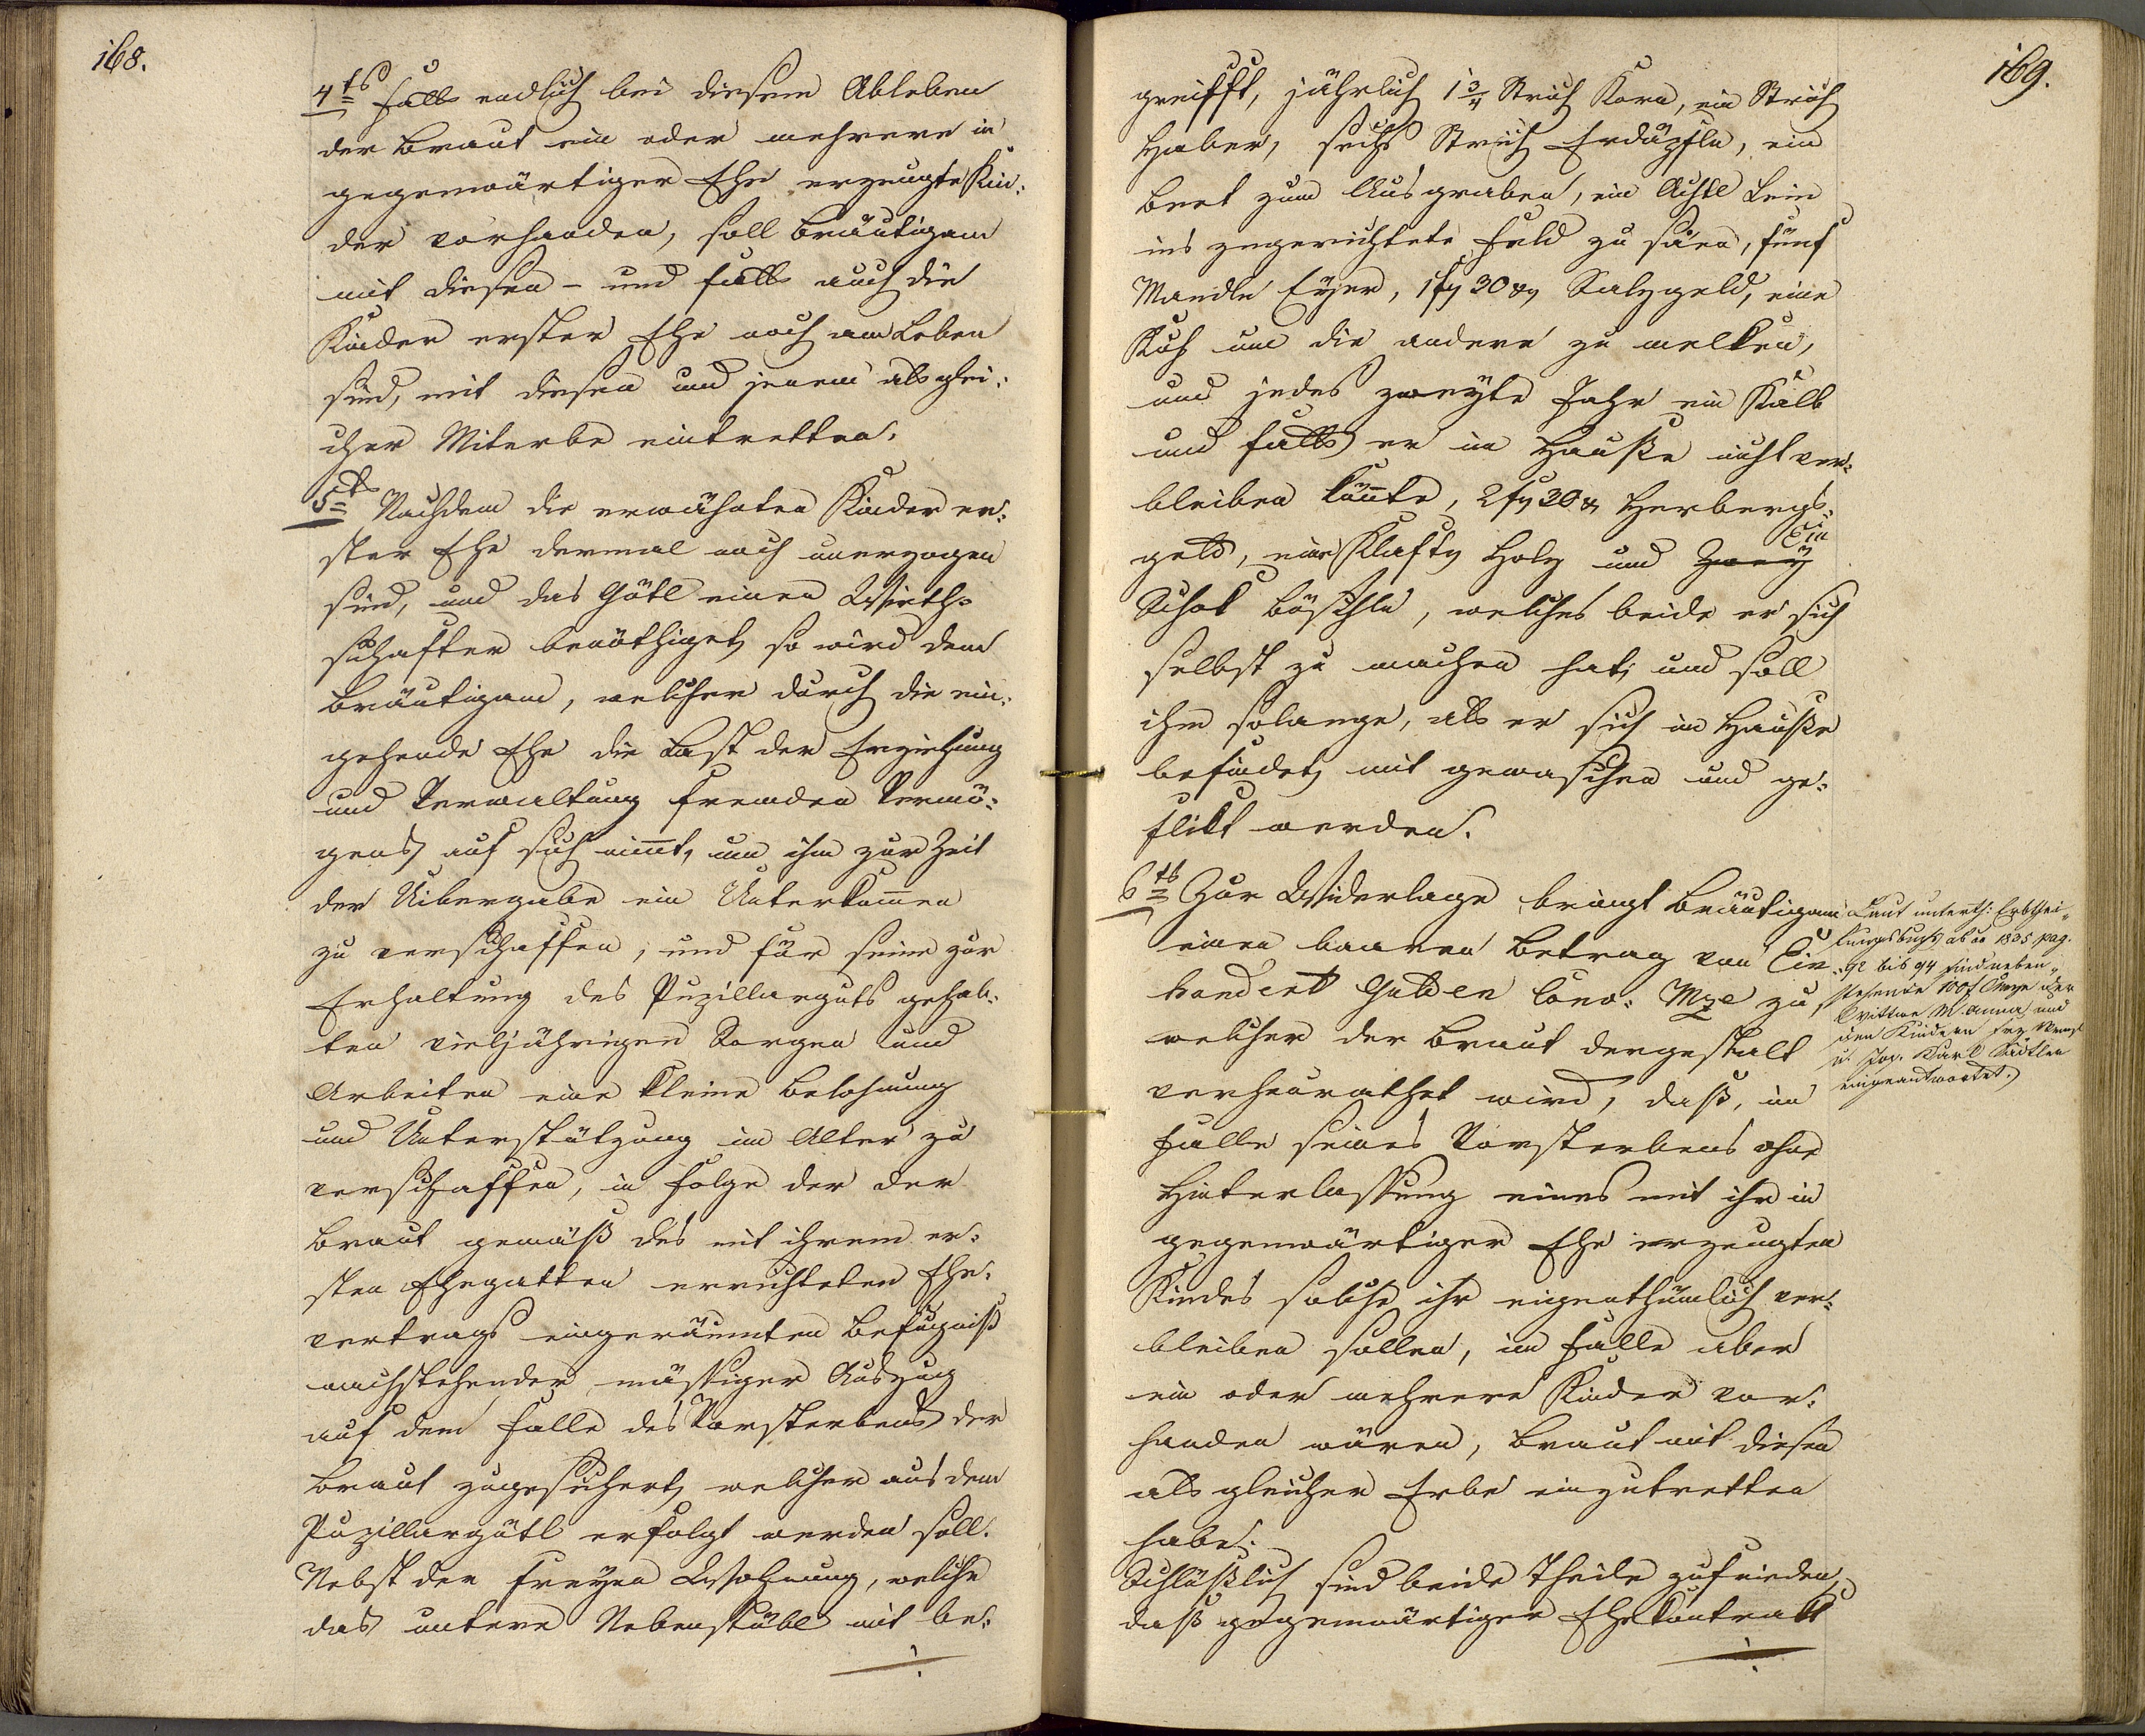 168.
4ts falls endlich bei diesem Ableben
der Braut ein oder mehrere in
gegenwärtiger Ehe erzeugte Kin=
der vorhanden, soll Bräutigam
mit diesen - und falls auch die
Kinder erster Ehe noch am Leben
sind, mit diesen und jenem als glei=
cher Miterbe eintretten.
5ts Nachdem die erwähnten Kinder er=
ster Ehe dermal noch unerzogen
sind, und das Gütl einen Wirth=
schafter benöthiget, so wird dem
Bräutigam, welcher durch die ein=
gehende Ehe die Last der Erziehung
und Verwaltung fremden Vermö=
gens auf sich nimt, um ihm zur Zeit
der Uibergabe ein Unterkommen
zu verschaffen, und für seine zur
Erhaltung des Pupillarguts gehab=
ten vieljährigen Sorgen und
Arbeiten eine kleine Belohnung
und Unterstützung im Alter zu
verschaffen, in Folge der der
Braut gemäß des mit ihrem er=
sten Ehegatten errichteten Ehe=
vertrags eingeräumten Befugniß
nachstehender mässiger Auszug
auf dem Falle des Vorsterbens der
Braut zugesichert, welcher aus dem
Pupillargütl erfolgt werden soll.
Nebst der freyen Wohnung, welche
das untere Nebenstübl mit be=
169.
greifft, jährlich 1 3/4 Strich Korn, ein Strich
Haber, sechs Strich Erdäpfln, ein
Beet zum Ausgraben, ein Achtl Lein
ins zugerichtete Feld zu säen, fünf
Mandln Eyer, 1 f 30 x Salzgeld, eine
Kuh um die andere zu melken,
und jedes zweyte Jahr ein Kalb
und falls er im Hauße nicht ver=
bleiben könnte, 2 f 30 x Herbergs=
geld, eine Klafter Holz und Zwey Ein
Schok Büschln, welches beide er sich
selbst zu machen hat, und soll
ihm solange, als er sich im Hauße
befindet, mit gewaschen und ge=
flikt werden.
6ts Zur Widerlage bringt Bräutigam
einen baaren Betrag von Ein
hundert Gulden Conv: Mze zu,
welcher der Braut dergestalt
verheurathet wird, daß, im
Falle seines Vorsterbens ohne
Hinterlassung eines mit ihr in
gegenwärtiger Ehe erzeugten
Kindes solche ihr eigenthümlich ver=
bleiben sollen, im Falle aber
ein oder mehrere Kinder vor=
handen wären, Braut mit diesen
als gleicher Erbe einzutretten
habe.
Schlüßlich sind beide Theile zufrieden,
daß gegenwärtiger Ehekontrakt
Laut unterth: Erbthei=
lungsbuchs ab ao 1835 pag.
92 bis 94 sind neben=
stehende 100 f CMze der
Wittwe M. Anna und
den Kindern
u. Jos. Karl
eingeantwortet.